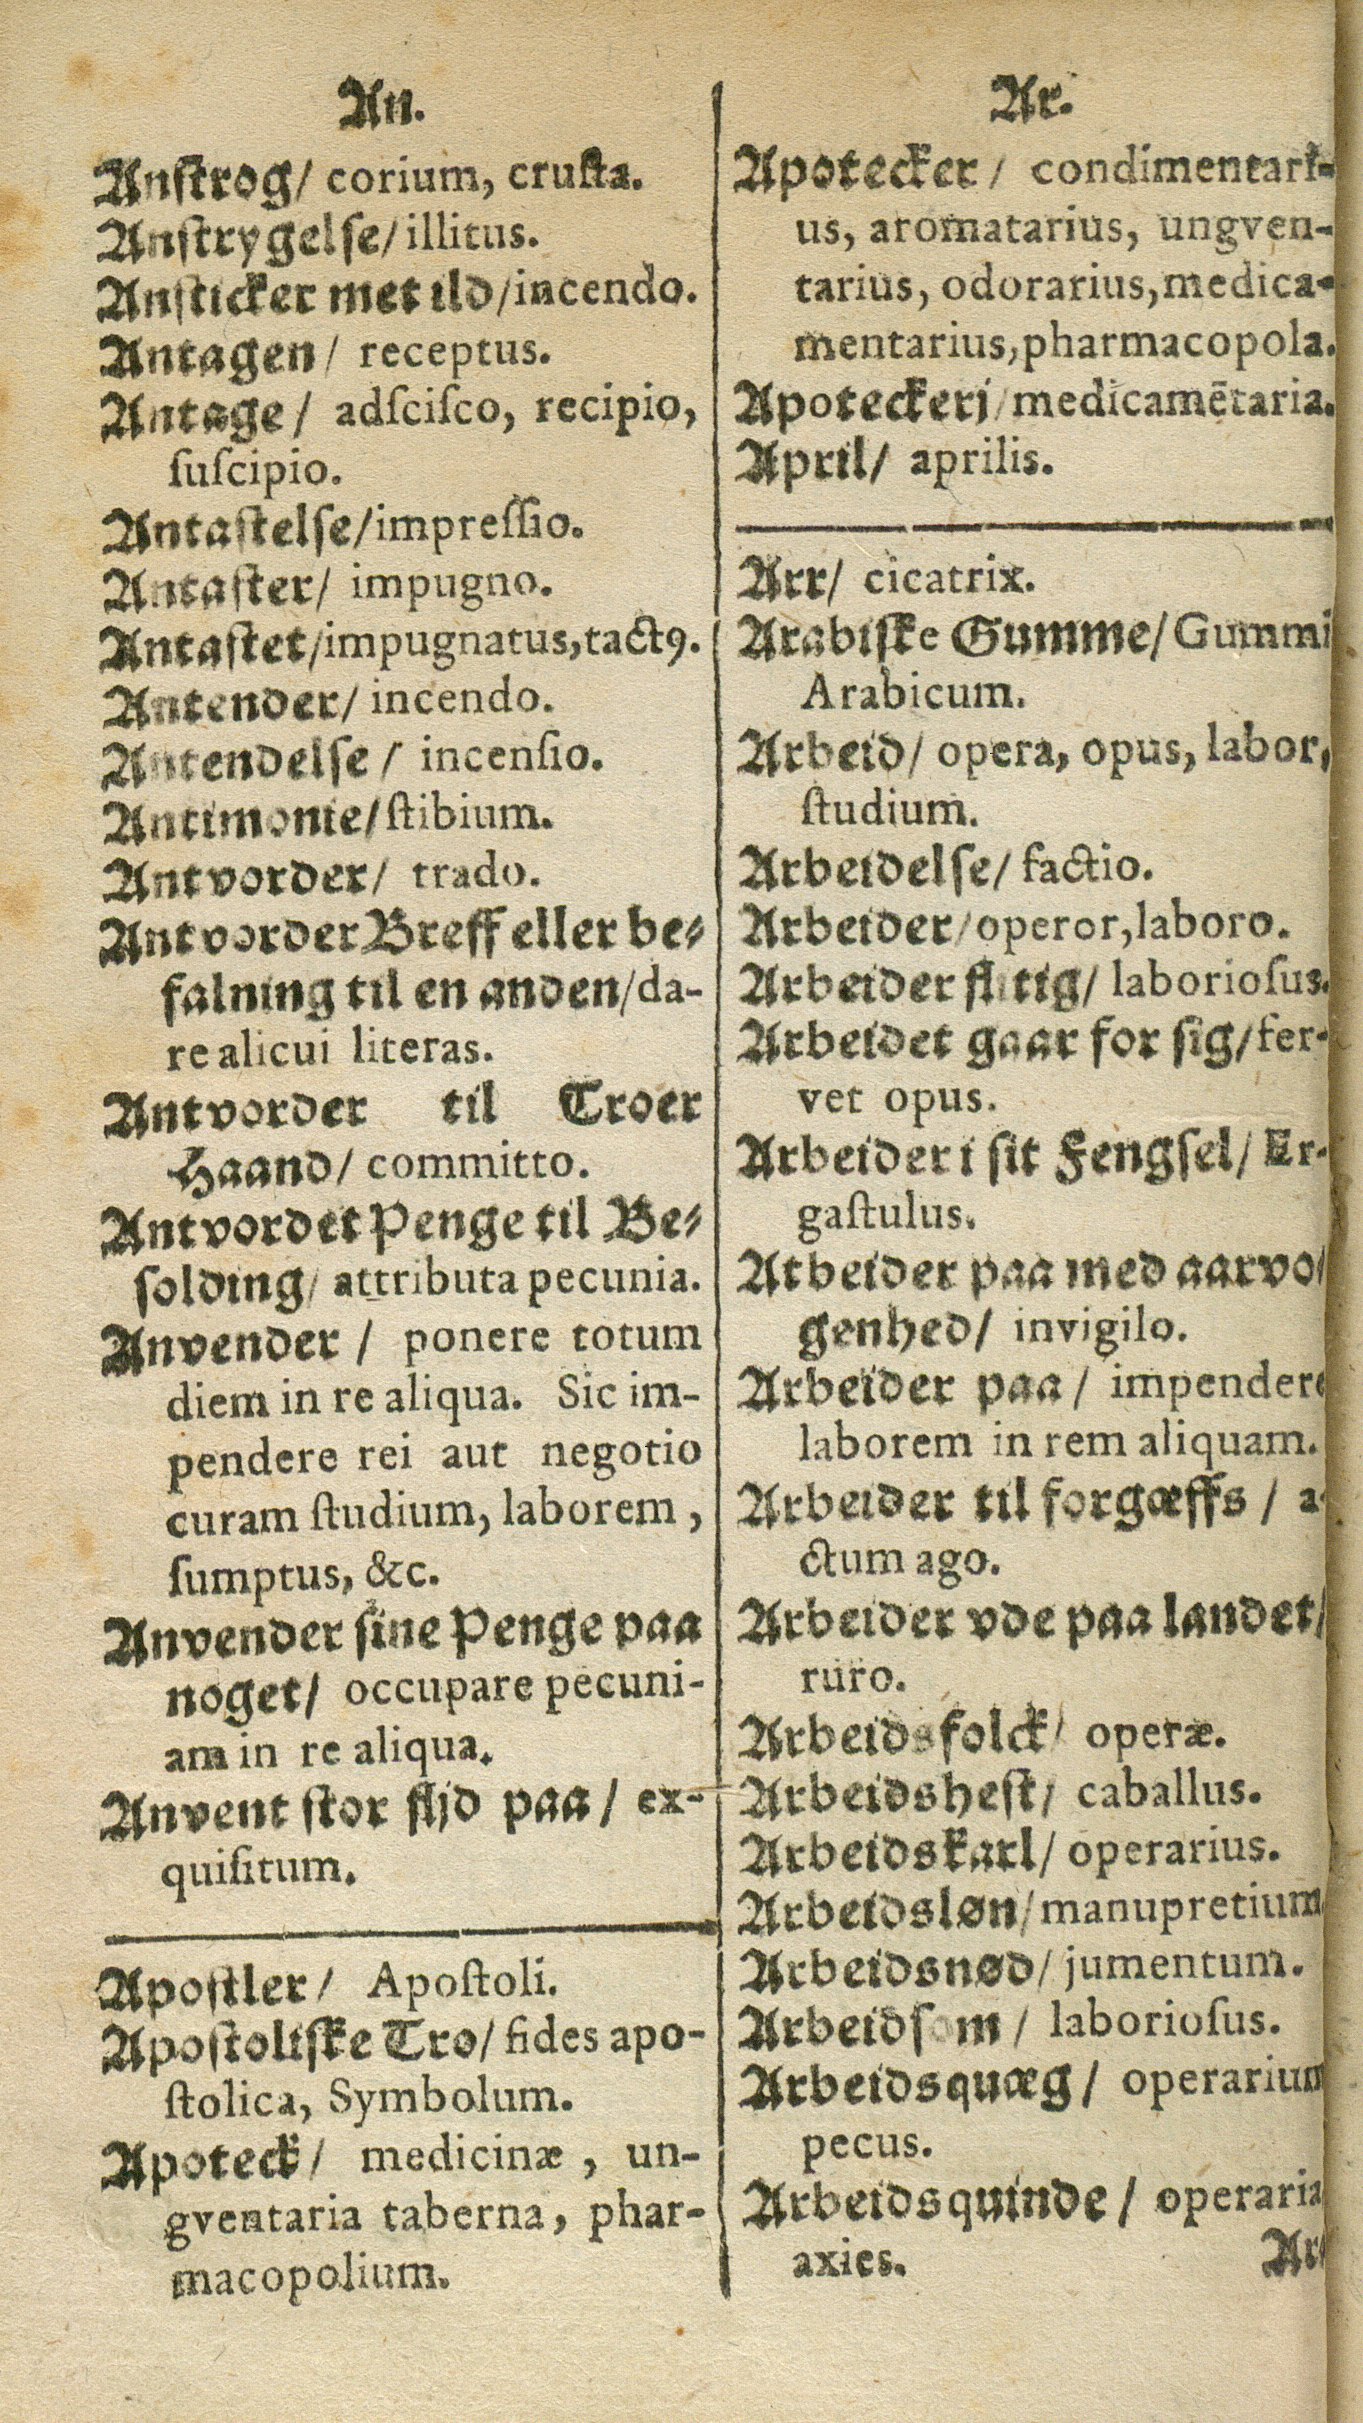 An.
Anstrog/ corium, crusta.
Anstrygelse/ illitus.
Ansticker met ild/incendo.
Antagen/ receptus.
Antage/ adſciſco, recipio,
ſuſcipio.
Antastelse/impreſſio.
Antaster/ impugno.
Antastet/impugnatus,tactꝰ.
Antender/ incendo.
Antendelse/ incenſio.
Antimonie/ſtibium.
Antvorder/ trado.
Antvorder Breff eller be⸗
falning til en anden/da-
re alicui literas.
Antvorder til Troer
Haand/ committo.
Antvordet Penge til Be⸗
solding/ attributa pecunia.
Anvender/ ponere totum
diem in re aliqua. Sic im-
pendere rei aut negotio
curam ſtudium, laborem,
ſumptus, &c.
Anvender sine Penge paa
noget/ occupare pecuni-
am in re aliqua.
Anvent stor flid paa/ ex-
quiſitum.
Apostler/ Apoſtoli.
Apostoliske Tro/ fides apo-
ſtolica, Symbolum.
Apoteck/ medicinæ, un-
gventaria taberna, phar-
macopolium.
Ar.
Apotecker/ condimentari-
us, aromatarius, ungven-
tarius, odorarius,medica-
mentarius,pharmacopola.
Apoteckerj/medicamētaria.
April/ aprilis.
Arr/ cicatrix.
Arabiske Gumme/ Gummi
Arabicum.
Arbeid/ opera, opus, labor,
ſtudium.
Arbeidelse/ factio.
Arbeider/operor,laboro.
Arbeider flitig/ laborioſus.
Arbeidet gaar for sig/fer-
vet opus.
Arbeider i sit Fengsel/ Er-
gaſtulus.
Atbeider paa med aarvo⸗
genhed/ invigilo.
Arbeider paa/ impendere
laborem in rem aliquam.
Arbeider til forgæffs/ a-
ctum ago.
Arbeider vde paa landet/
ruro.
Arbeidsfolck/ operæ.
Arbeidshest/ caballus.
Arbeidskarl/ operarius.
Arbeidsløn/manupretium
Arbeidsnød/ jumentum.
Arbeidsom/ laborioſus.
Arbeidsquæg/ operarium
pecus.
Arbeidsquinde/ operaria
axies.
Ar⸗